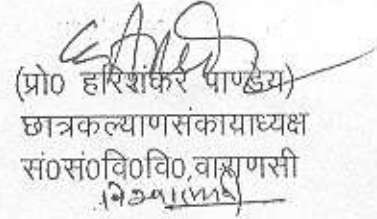 (प्रो0 हरिशंकर पाण्डेय)
छात्रकल्याणसंकायाध्यक्ष
सं0सं0वि0वि0,वाराणसी